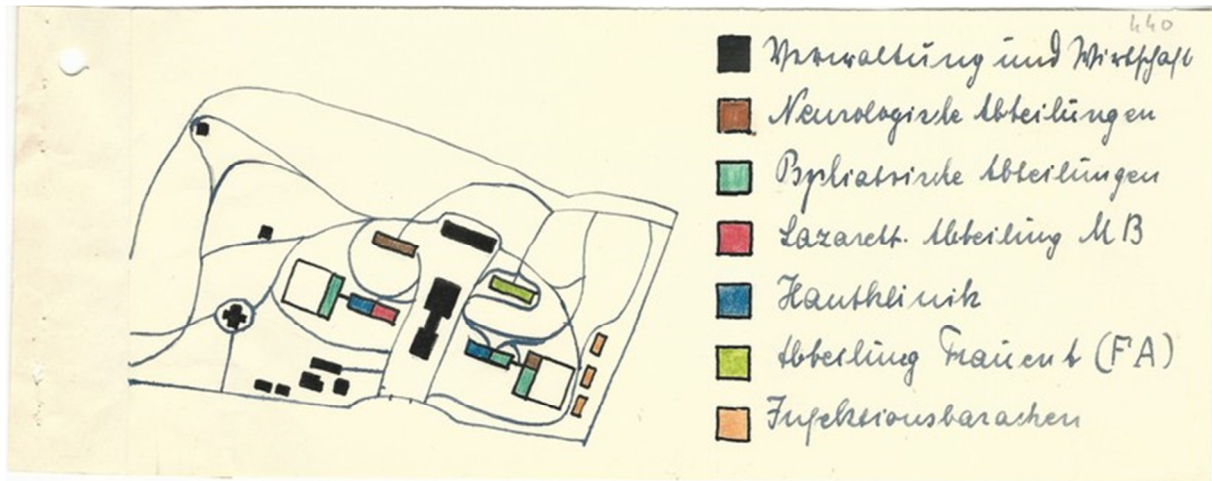 440
Verwaltung und Wirtschaft
Neurologische Abteilungen
Psychiatrische Abteilungen
Lazarett. Abteilung MB
Hautklinik
Abteilung Frauen (FA)
Infektionsbaracken